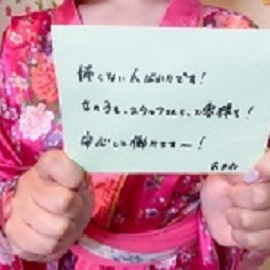 怖くない人ばかりです!
女の子も、スタッフさんも、お客様も!
安心して働けます〜!